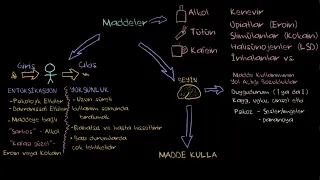 Maddeler
Alkol
Tütün
Kafein
Kenevir
Opiatlar (Eroin)
Stimülanlar (Kokain)
Halüsinojenler (LSD)
İnhalanlar vs.
Giriş
Çıkış
ENTOKSİKASYON
- Psikolojik Etkiler
- Davranışsal Etkiler
- Maddeye bağlı
"Sarhoş" - Alkol
"Kafası güzel" -
Eroin veya Kokain
YOKSUNLUK
- Uzun süreli
kullanım sonunda
bırakmak
- Rahatsız ve hasta hissettirir
- Bazı durumlarda
çok tehlikelidir
BEYİN
Madde Kullanımının
Yol Açtığı Bozukluklar
Duygudurum (1 ya da ↓)
Kaygı, uyku, cinsel etki
Psikoz -
- paranoya
MADDE KULLA